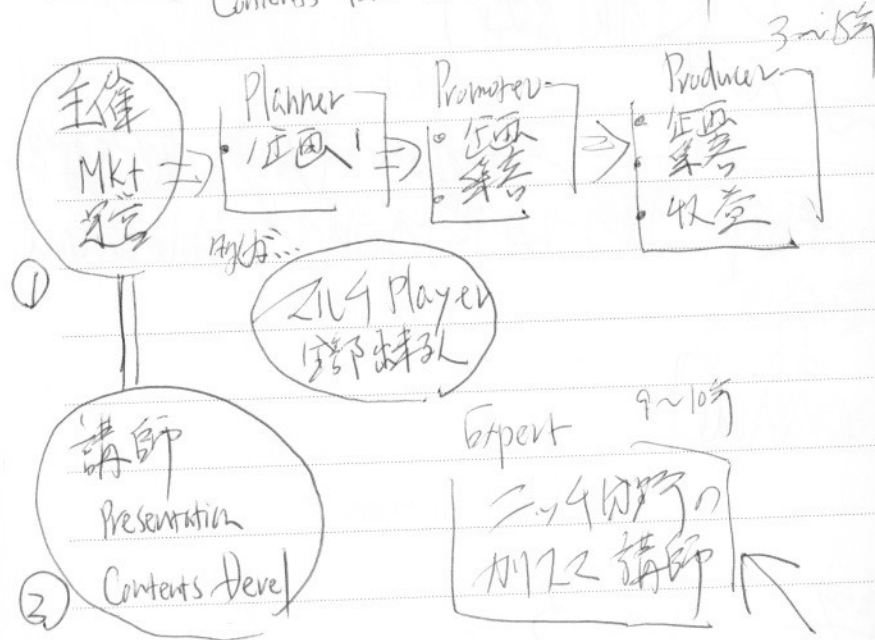 Contents
3〜5年
主催
MKt
運営
Planner
・企画
Promoter
・企画
・集客
Producer
・企画
・集客
・収益
①
マルチPlayer
全部出来る人
講師
Presentation
Contents Devel
②
Expert
9〜10年
ニッチ分野の
カリスマ講師